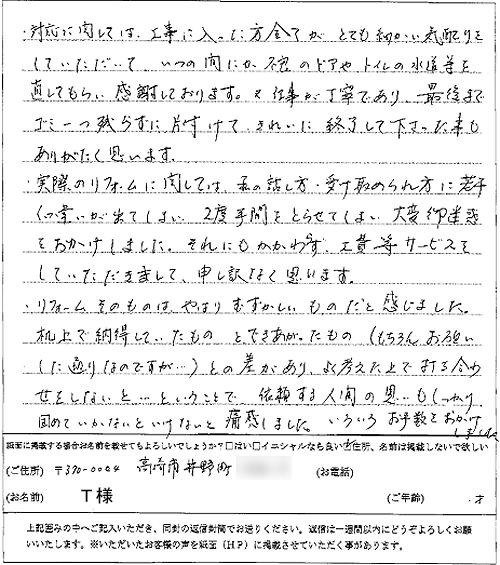 ・対応に関しては、工事に入った方全てが とても細かい気配りを
していただいて いつの間にか 窓のドアや トイレの水道等を
直してもらい 感謝しております。又 仕事が丁寧であり、最後まで
ゴミ一つ残らずに 片付けて、きれいに 終了して下さった事も
ありがたく思います。
・実際のリフォームに関しては、私の話し方・受け取められ方に若干
くい違いが出てしまい 2度手間をとらせてしまい 大変御迷惑
をおかけしました。それにもかかわず、工費等サービスを
していただきまして、申し訳なく思います。
・リフォームそのものは、やはり むずかしい ものだと感じました。
机上で納得していたもの とできあがったもの (もちろん お願い
した通りなのですが…) との差があり、よく考えた上で打ち合わ
せをしないと…ということで、依頼する人間の思いもしっかり
固めていかないといけないと痛感しました。いろいろ お手数をおかけ
しました
紙面に掲載する場合お名前を載せてもよろしいでしょうか?□はい□イニシャルなら良い☑住所、名前は掲載しないで欲しい
(ご住所) 〒370-0004 高崎市井野町 (お電話)
(お名前) T様 (ご年齢) 才
上記囲みの中へご記入いただき、同封の返信封筒でお送りください。返信は一週間以内にどうぞよろしくお願
いいたします。※いただいたお客様の声を紙面(HP)に掲載させていただく事があります。